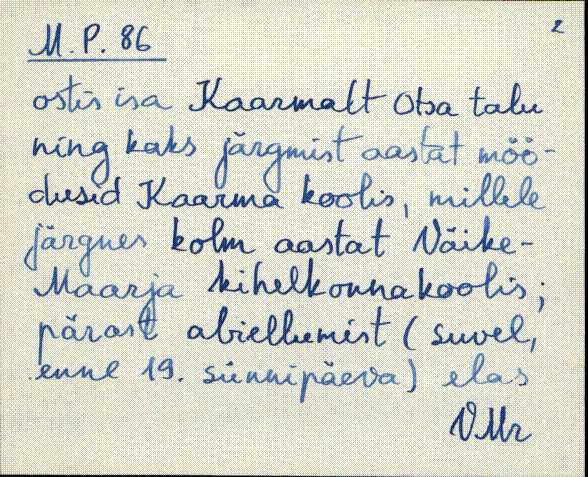 M. P. 86
2
ostis isa Kaarmalt Otsa talu
ning kaks järgmist aastat möö-
dusid Kaarma koolis, millele
järgnes kolm aastat Väike-
Maarja kihelkonnakoolis;
pärast abiellumist (suvel,
enne 19. sünnipäeva) elas
VMr